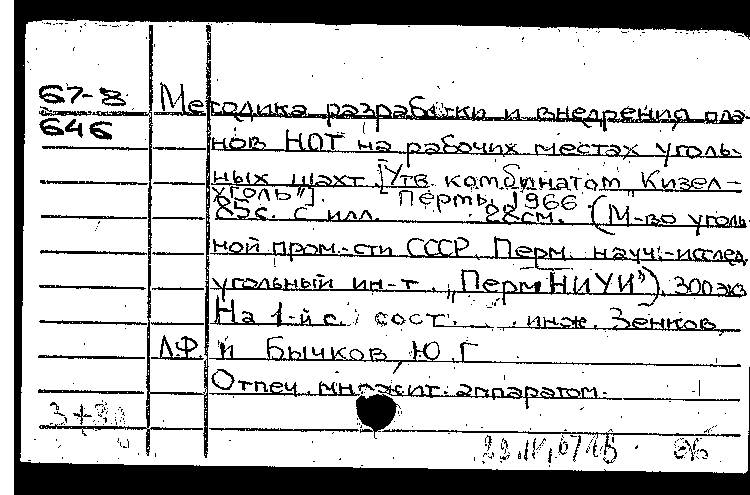 67-8 Методика разработки и внедрения пла-
646
нов НОТ на рабочих местах уголь-
ных шахт. [Утв. комбинатом „Кизел-
уголь"]. Пермь, 1966
85с. с илл. 22см. (М-во уголь-
ной пром-сти СССР. Перм. науч.-исслед.
угольный ин-т. „ПермНИУИ"). 300 экз
На 1-й с. сост. инж. Зенков,
Л.Ф. и Бычков, Ю.Г
Отпеч. множит. аппаратом.